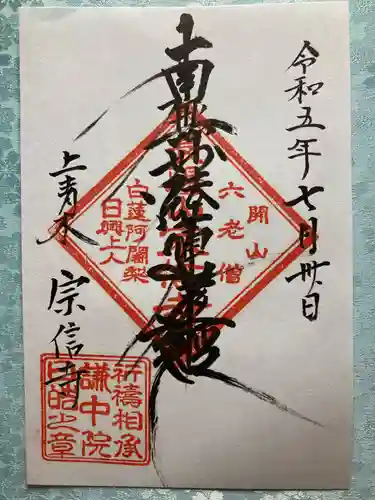 令和五年七月卅日
南無妙法蓮華経
開山
六老僧
白蓮阿闍梨
日興上人
上青木
宗信寺
祈禱相承
謙中院